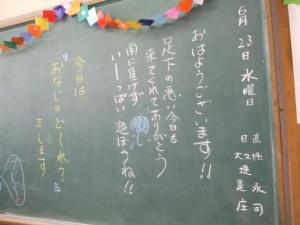 6月23日 水曜日
日直
おはようございます!!
足下の悪い今日も
来てくれてありがとう
雨に負けず
いーっぱい 遊ぼうね!!
今日は
おなじのど〜れ?
をします